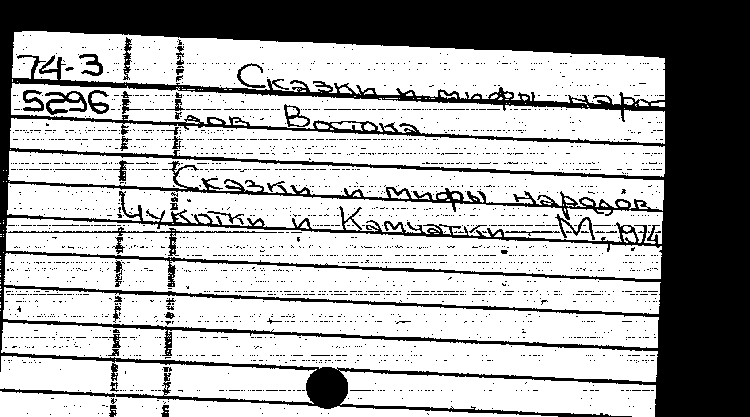 74-3
5296
Сказки и мифы наро-
дов Востока
Сказки и мифы народов
Чукотки и Камчатки. М., 1974